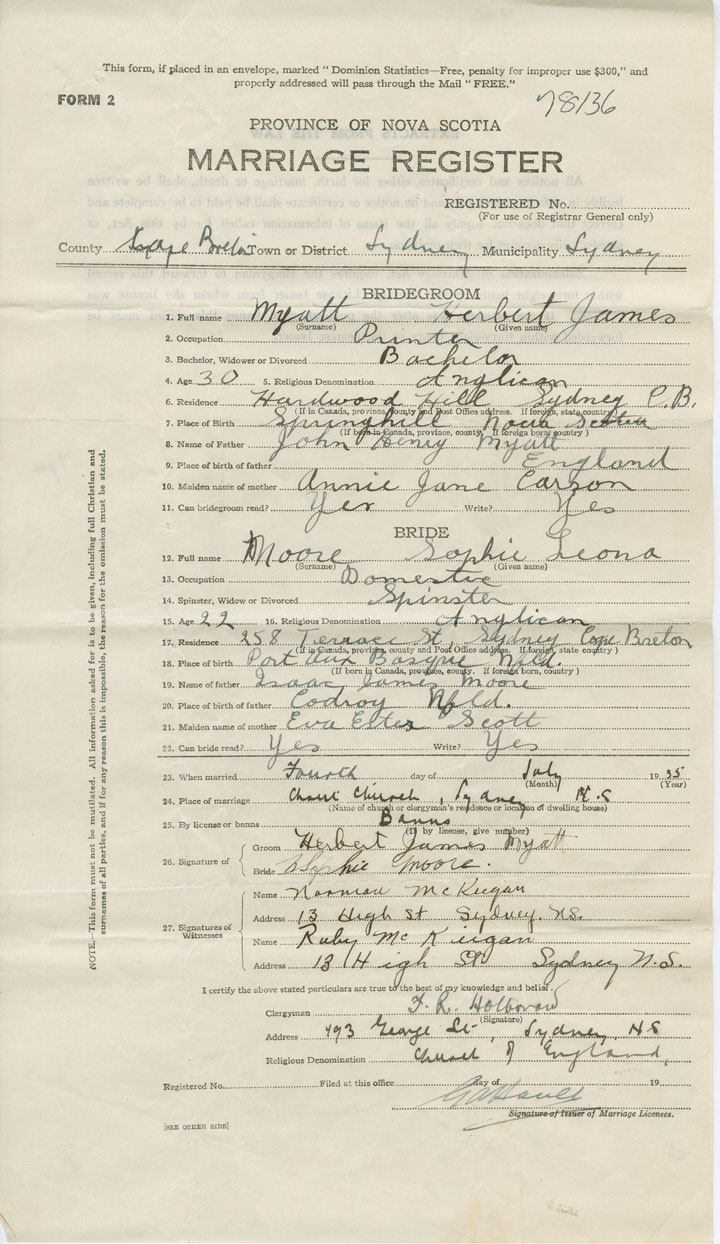 This form, if placed in an envelope, marked " Dominion Statistics—Free, penalty for improper use $300," and
properly addressed will pass through the Mail " FREE."
FORM 2
78136
PROVINCE OF NOVA SCOTIA
MARRIAGE REGISTER
REGISTERED No.
(For use of Registrar General only)
County Cape Breton Town or District Sydney Municipality Sydney
BRIDEGROOM
1. Full name Myatt Herbert James
(Surname) (Given name)
2. Occupation Printer
3. Bachelor, Widower or Divorced Bachelor
4. Age 30 5. Religious Denomination Anglican
6. Residence Hardwood Hill Sydney C.B.
(If in Canada, province, county and Post Office address. If foreign, state country)
7. Place of Birth Springhill Nova Scotia
(If born in Canada, province, county. If foreign born, country)
8. Name of Father John Henry Myatt
9. Place of birth of father England
10. Maiden name of mother Annie Jane Carson
11. Can bridegroom read? Yes Write? Yes
BRIDE
12. Full name Moore Sophie Leona
(Surname) (Given name)
13. Occupation Domestic
14. Spinster, Widow or Divorced Spinster
15. Age 22 16. Religious Denomination Anglican
17. Residence 258 Terrace St, Sydney Cape Breton
(If in Canada, province, county and Post Office address. If foreign, state country)
18. Place of birth Port Aux Basque Nfld.
(If born in Canada, province, county. If foreign born, country)
19. Name of father Isaac James Moore
20. Place of birth of father Codroy Nfld.
21. Maiden name of mother Eva Ester Scott
22. Can bride read? Yes Write? Yes
23. When married Fourth day of July 1935
(Month) (Year)
24. Place of marriage Christ Church, Sydney N.S
(Name of church or clergyman's residence or location of dwelling house)
25. By license or banns Banns
(If by license, give number)
26. Signature of
Groom Herbert James Myatt
Bride Sophie Moore.
27. Signatures of Witnesses
Name Norman McKiegan
Address 13 High St Sydney. N.S.
Name Ruby McKiegan
Address 13 High St Sydney N.S.
I certify the above stated particulars are true to the best of my knowledge and belief.
Clergyman F. R.
(Signature)
Address 493 George St, Sydney, N S
Religious Denomination Church of England,
Registered No. Filed at this office day of 19
Signature of Issuer of Marriage Licenses.
[SEE OTHER SIDE]
NOTE.—This form must not be mutilated. All information asked for is to be given, including full Christian and
surnames of all parties, and if for any reason this is impossible, the reason for the omission must be stated.